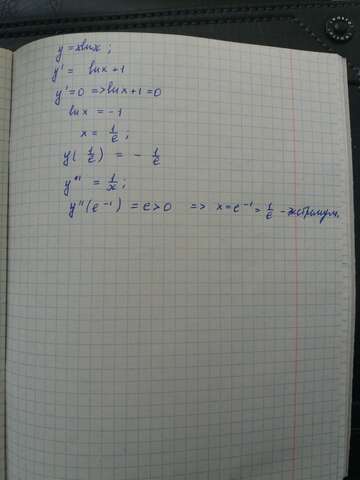 y = xlnx ;
y' = lnx + 1
y' = 0 => lnx + 1 = 0
lnx = -1
x = 1/e ;
y(1/e) = - 1/e
y'' = 1/x ;
y''(e⁻¹) = e > 0 => x = e⁻¹ = 1/e - экстремум.